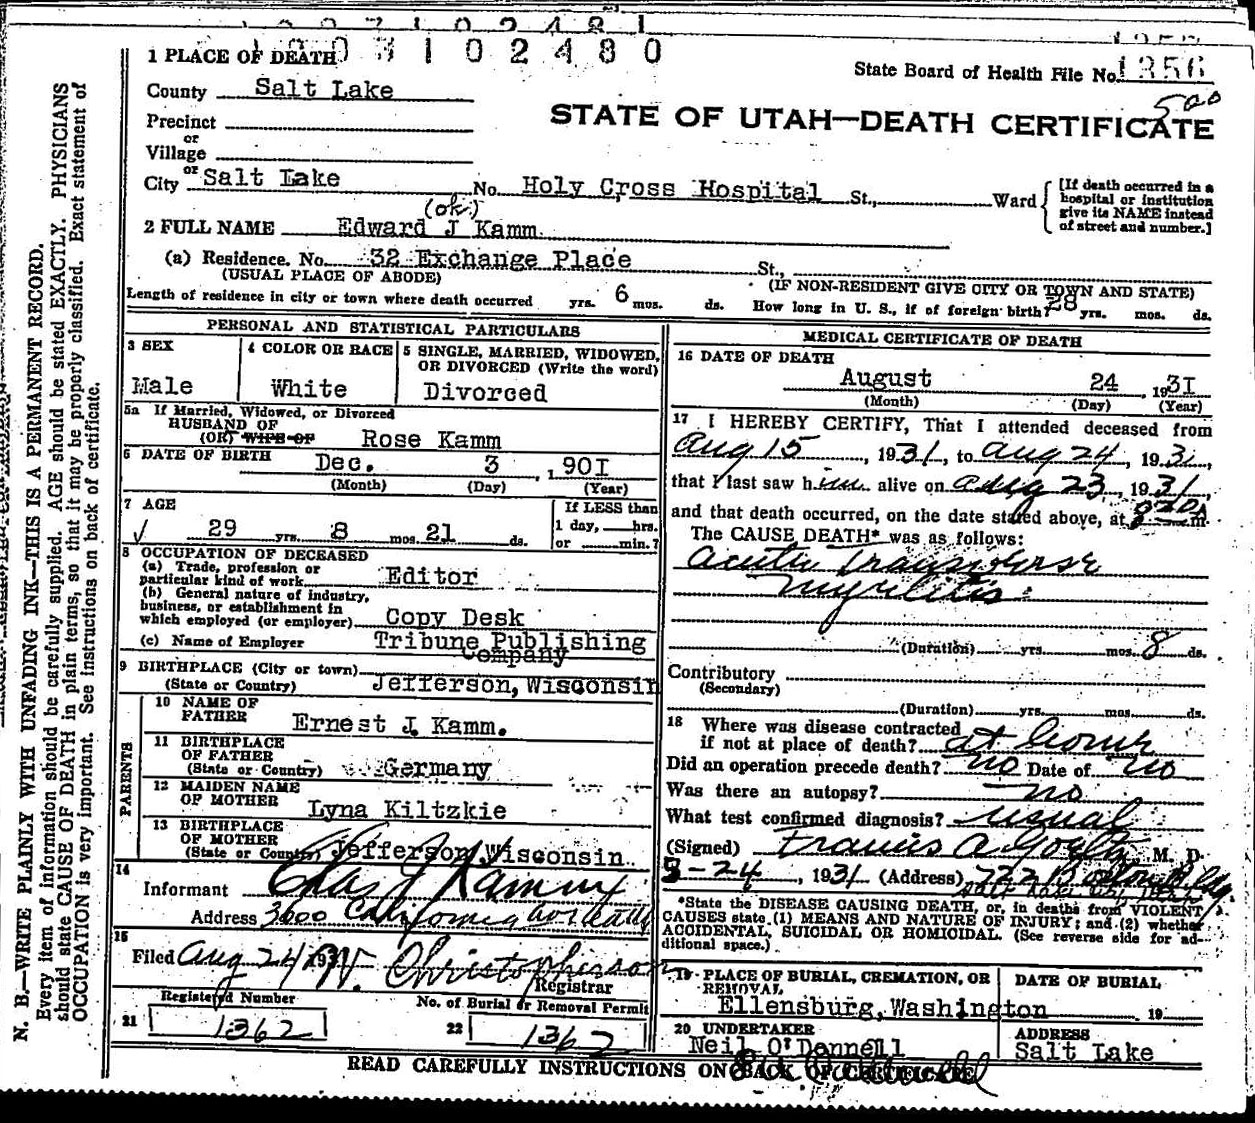 1003102480
1 PLACE OF DEATH
State Board of Health File No. 1356
County Salt Lake
500
STATE OF UTAH—DEATH CERTIFICATE
Precinct
or
Village
or
City Salt Lake No. Holy Cross Hospital St., Ward
[If death occurred in a
hospital or institution
give its NAME instead
of street and number.]
(ok)
2 FULL NAME Edward J Kamm
(a) Residence. No. 32 Exchange Place St.,
(USUAL PLACE OF ABODE) (IF NON-RESIDENT GIVE CITY OR TOWN AND STATE)
Length of residence in city or town where death occurred yrs. 6 mos. ds. How long in U. S., if of foreign birth? 28 yrs. mos. ds.
PERSONAL AND STATISTICAL PARTICULARS
3 SEX
Male
4 COLOR OR RACE
White
5 SINGLE, MARRIED, WIDOWED,
OR DIVORCED (Write the word)
Divorced
5a If Married, Widowed, or Divorced
HUSBAND OF
(OR) WIFE OF Rose Kamm
6 DATE OF BIRTH Dec. 3 , 1901
(Month) (Day) (Year)
7 AGE
√ 29 yrs. 8 mos. 21 ds.
If LESS than
1 day, hrs.
or min.?
8 OCCUPATION OF DECEASED
(a) Trade, profession or
particular kind of work Editor
(b) General nature of industry,
business, or establishment in
which employed (or employer) Copy Desk
(c) Name of Employer Tribune Publishing
Company
9 BIRTHPLACE (City or town)
(State or Country) Jefferson, Wisconsin
PARENTS
10 NAME OF
FATHER Ernest J. Kamm.
11 BIRTHPLACE
OF FATHER
(State or Country) Germany
12 MAIDEN NAME
OF MOTHER Lyna Kiltzkie
13 BIRTHPLACE
OF MOTHER
(State or Country) Jefferson, Wisconsin
14
Informant Chas J Kamm
Address 3600 California Av Seattle
15
Filed Aug 24 1931 W. Christopherson
Registrar
Registered Number
21 1362
No. of Burial or Removal Permit
22 1362
MEDICAL CERTIFICATE OF DEATH
16 DATE OF DEATH
August 24 , 1931
(Month) (Day) (Year)
17 I HEREBY CERTIFY, That I attended deceased from
Aug 15 , 1931, to Aug 24 , 1931,
that I last saw him alive on Aug 23 , 1931,
and that death occurred, on the date stated above, at m
The CAUSE DEATH* was as follows:
Acute transverse
myelitis
(Duration) yrs. mos. 8 ds.
Contributory
(Secondary)
(Duration) yrs. mos. ds.
18 Where was disease contracted
if not at place of death? at home
Did an operation precede death? no Date of no
Was there an autopsy? no
What test confirmed diagnosis? usual
(Signed) Francis A Goeltz, M. D.
8-24, 1931 (Address) 722 Boston Bldg
Salt Lake City Utah
*State the DISEASE CAUSING DEATH, or, in deaths from VIOLENT
CAUSES state (1) MEANS AND NATURE OF INJURY; and (2) whether
ACCIDENTAL, SUICIDAL OR HOMICIDAL. (See reverse side for ad-
ditional space.)
19 PLACE OF BURIAL, CREMATION, OR
REMOVAL
Ellensburg, Washington
DATE OF BURIAL
19
20 UNDERTAKER
Neil O'Donnell
ADDRESS
Salt Lake
READ CAREFULLY INSTRUCTIONS ON BACK OF CERTIFICATE
N. B.—WRITE PLAINLY WITH UNFADING INK—THIS IS A PERMANENT RECORD.
Every item of information should be carefully supplied. AGE should be stated EXACTLY. PHYSICIANS
should state CAUSE OF DEATH in plain terms, so that it may be properly classified. Exact statement of
OCCUPATION is very important. See instructions on back of certificate.